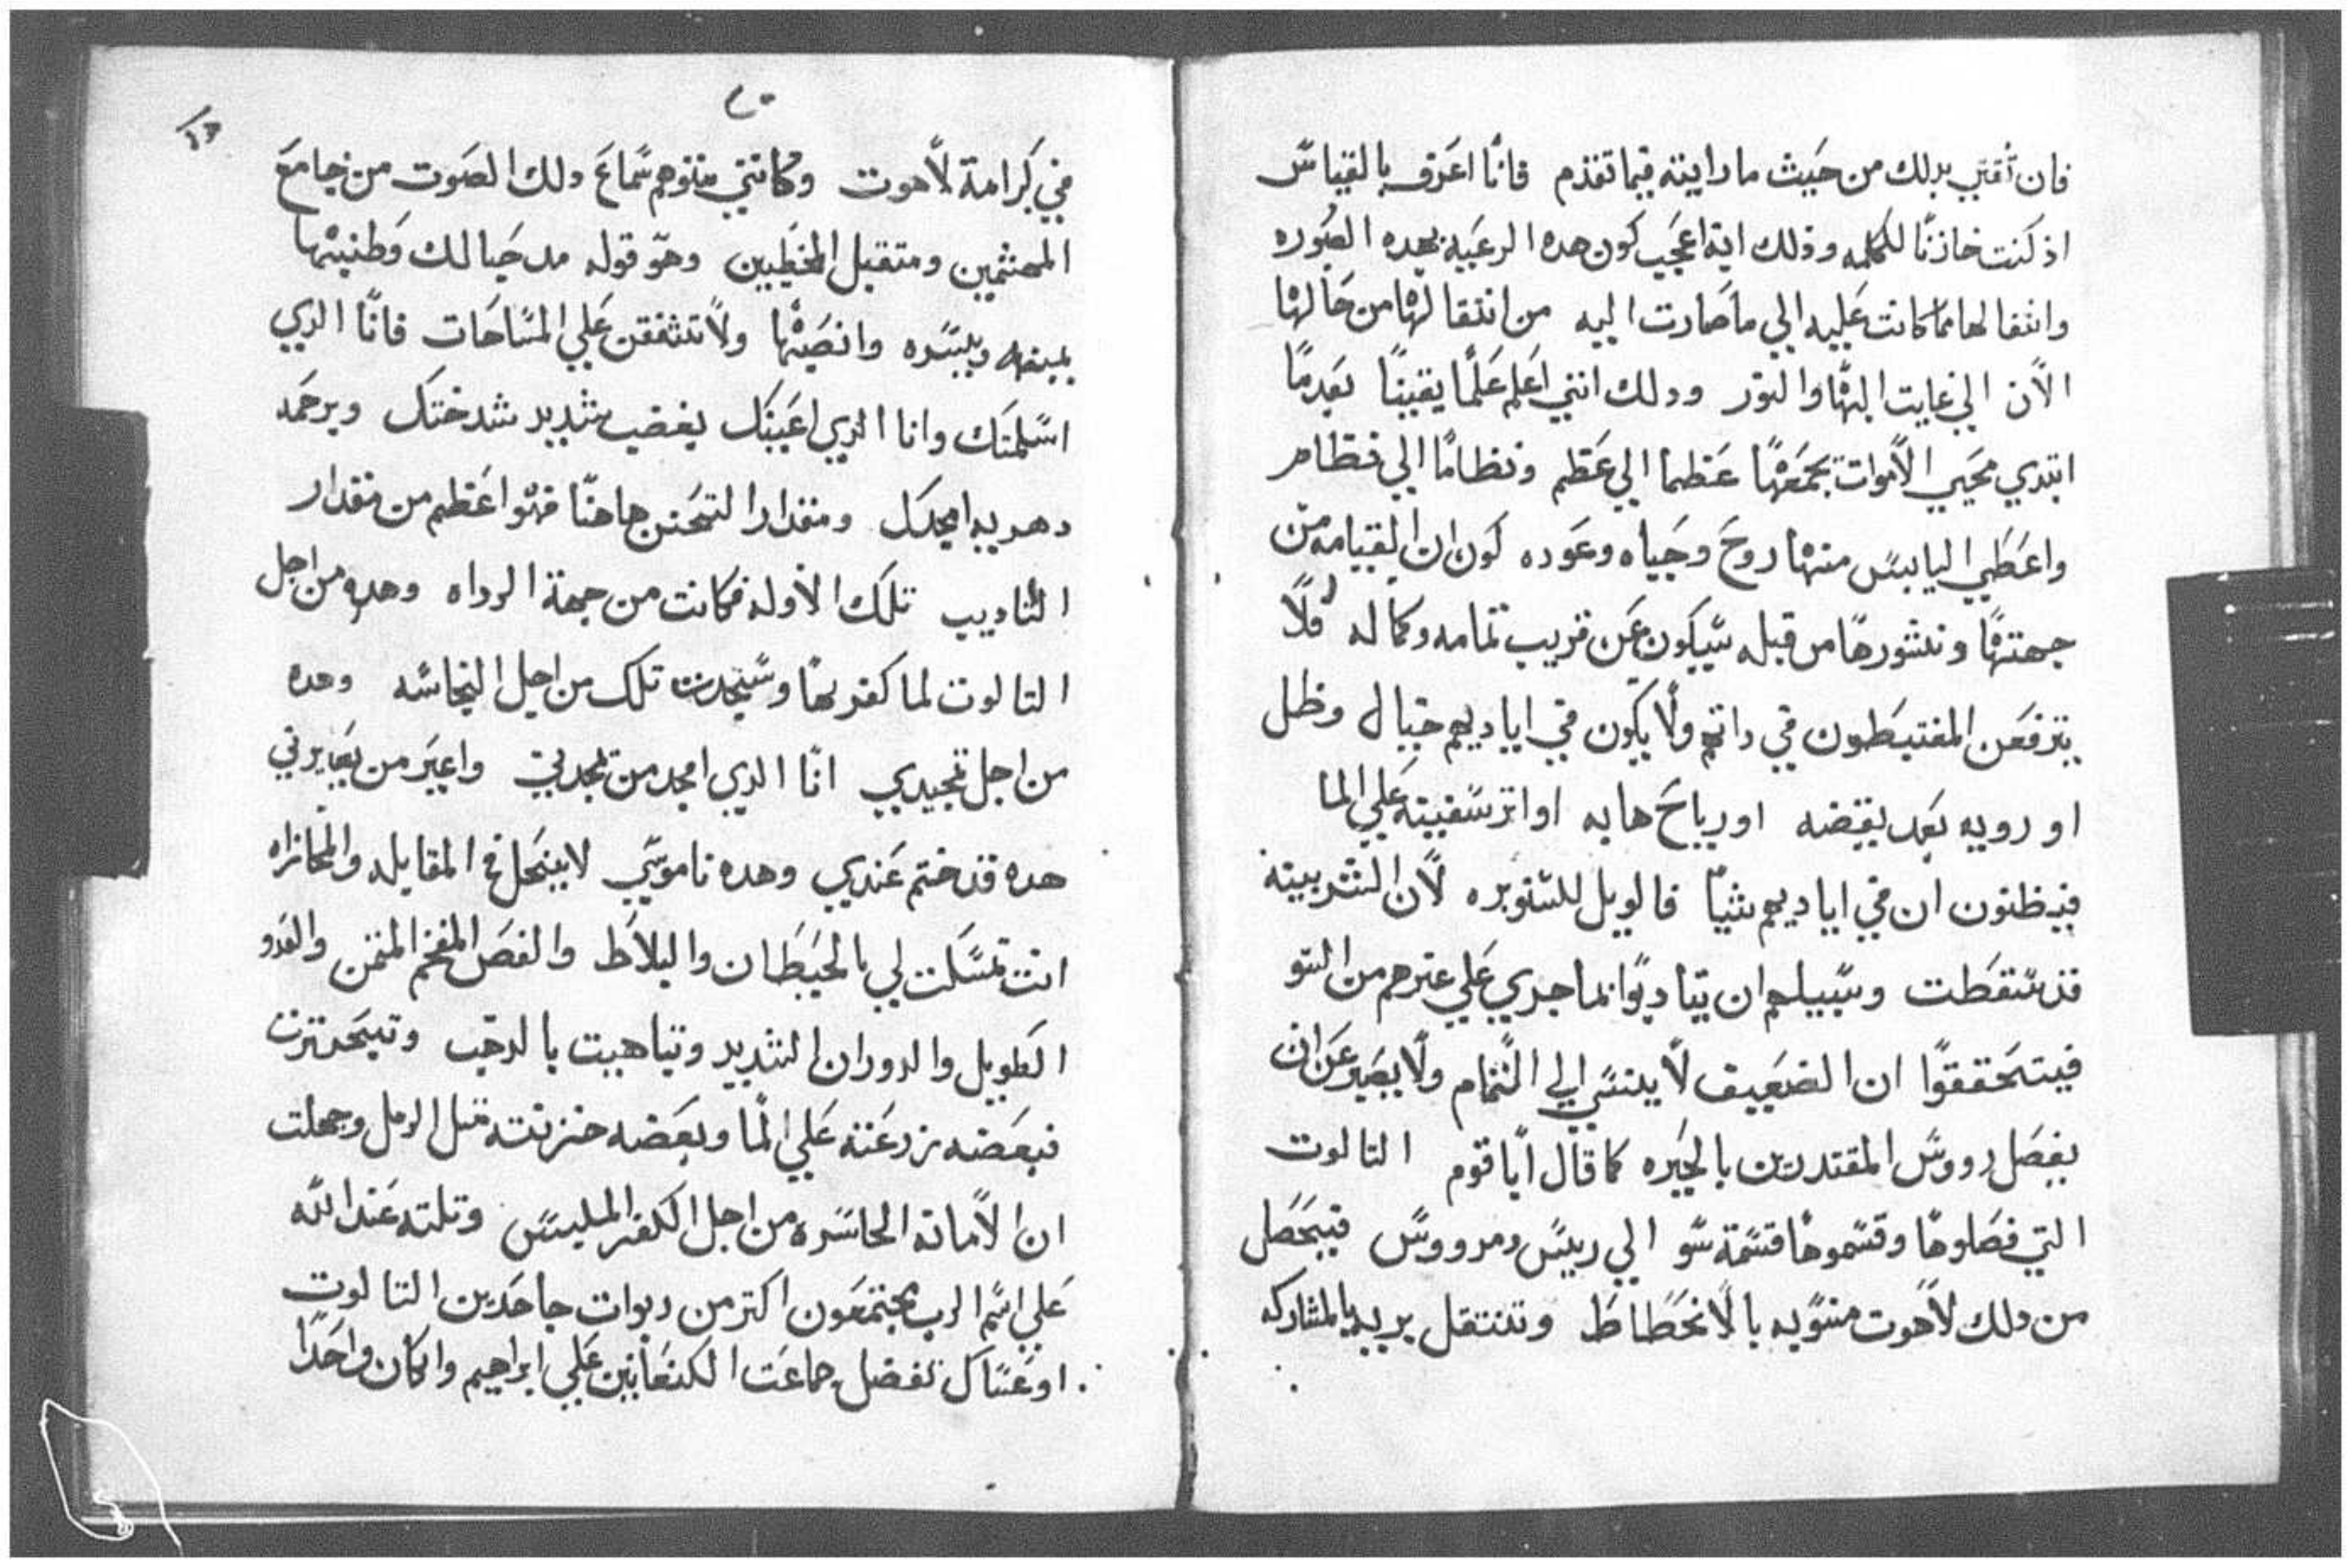 فان تقتي بدلك من حيث ما رايته فيما تقدم فانا اعرف بالقياس
اذ كنت خازنًا للكلمه وذلك اية اعجب كون هده الرعيه بهده الصوره
وانتقالها مما كانت عليه الي ما صارت اليه من انتقالها من حالها
الان الي غايت البها والنور ودلك انني اعلم علمًا يقينًا بعدما
ابتدي محيي الاموات بجمعها عظما الي عظم ونظامًا الي نظام
واعطي اليابس منها روح وحياه وعوده كون ان القيامه من
جهتها ونشورها من قبله سيكون عن قريب تمامه وكماله فلا
يترفعن المغتبطون في داتهم ولا يكون في اياديهم خيال وظل
او رويه بعد يقضه او رياح هابه او اتر سفينة علي الما
فيظنون ان في اياديهم شيا فالويل للسنوبره لان الشربينة
قد سقطت وسبيلهم ان يتادبوا بما جري علي غيرهم من السو
فيتحققوا ان الضعيف لا ينسي الي التمام ولا يصير عن ان
يفصل رووس المقتدرين بالحيره كما قال اياقوم التالوت
التي فصلوها وقسموها قسمة سو الي ريس ومرووس فيحصل
من دلك لاهوت مسويه بالانحطاط وتنتقل بريه بالمشاركه
في كرامة لاهوت وكانني متوهم سماع دلك الصوت من جامع
المهشمين ومتقبل المخطيين وهو قوله مد حبالك وطنيتها
يمينه ويسره وانصبها ولا تشفقن علي المساحات فانا الدي
اسلمتك وانا الدي اعينك بغضب شديد شدختك وبرحمه
دهريه امجدك ومقدار التحنن هاهنا فهو اعظم من مقدار
التاديب تلك الاوله فكانت من جهة الرداه وهده من اجل
التالوت لما كفر بها وسجدت تلك من اجل النجاسه وهده
من اجل تمجيدي انا الدي امجد من تمجدني واعير من يعايرني
هده قد ختم عندي وهده ناموسي لا ينحل في المقابله والمجازاه
انت تمسكت لي بالحيطان والبلاط والفص المفخم المتمن والعدو
الطويل والدوران الشديد وتباهيت بالدهب
فبعضه زرعته علي الما وبعضه خزنته متل الرمل وجهلت
ان الامانة الحاسره من اجل الكفر المليس وتلته عند الله
علي اسم الرب مجتمعون اكتر من ربوات جاحدين التالوت
او عساك تفضل جماعت الكنعانيين علي ابراهيم وان كان واحدًا